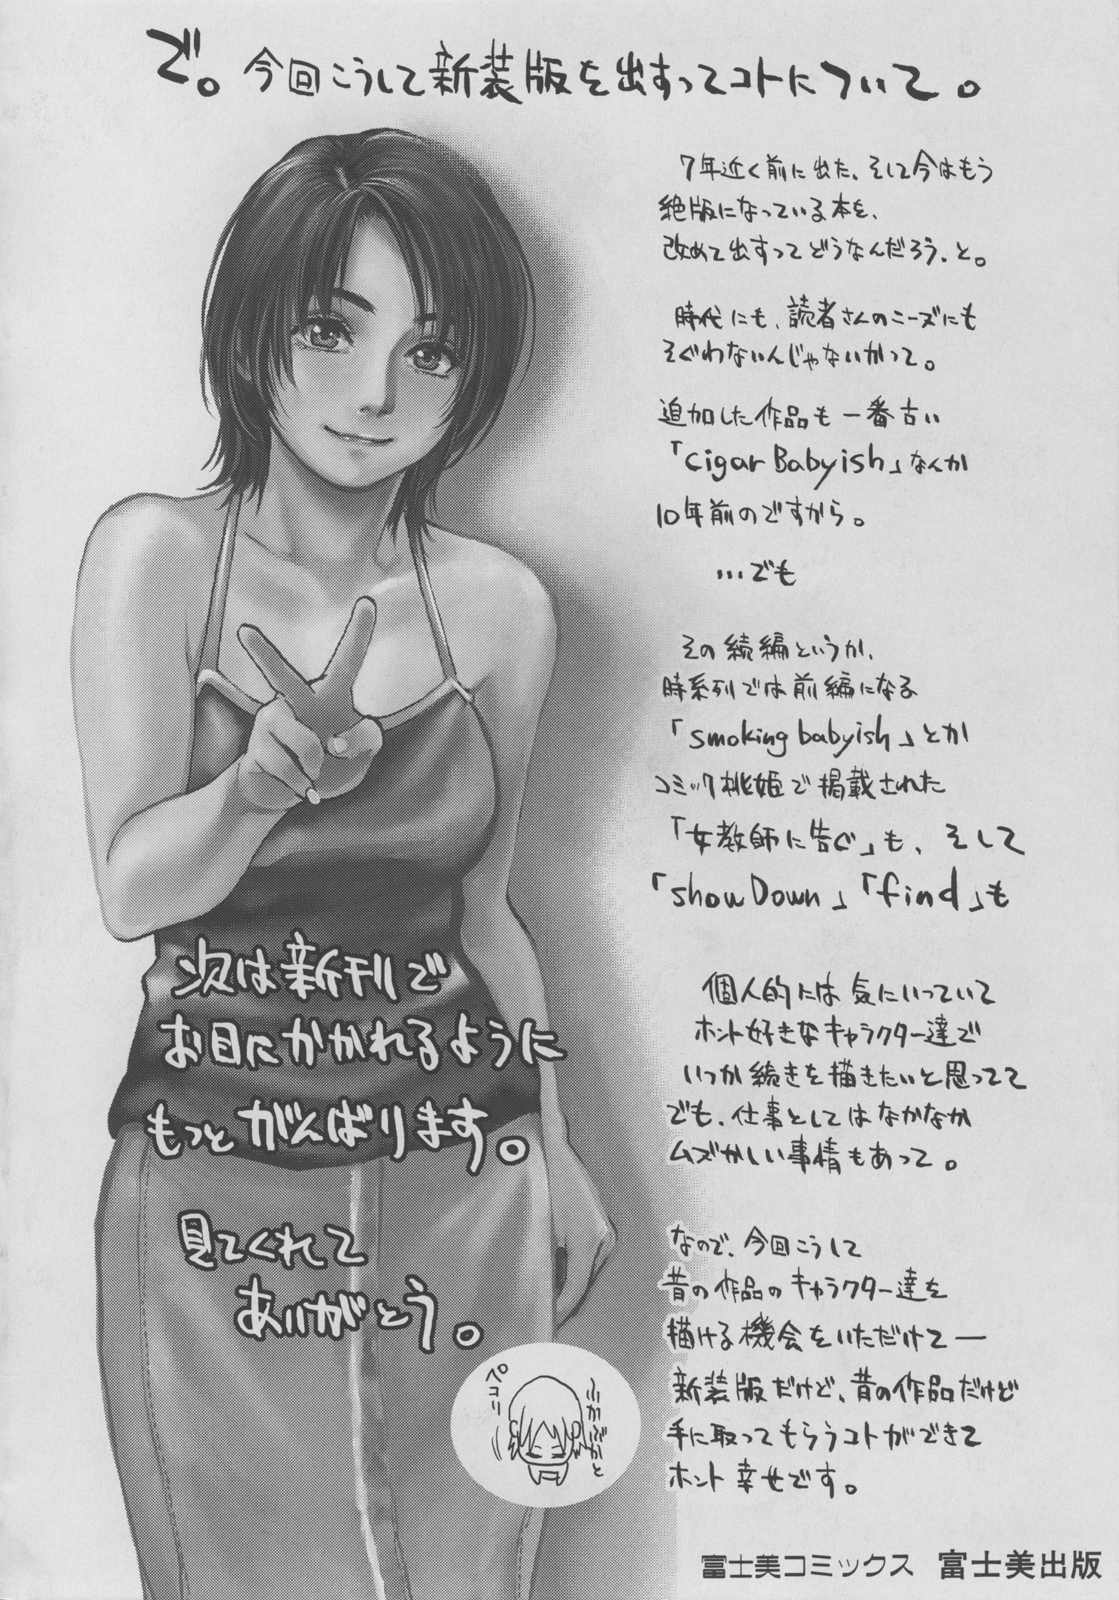 で。今回こうして新装版を出すってコトについて。
7年近く前に出た、そして今はもう
絶版になっている本を、
改めて出すってどうなんだろう、と。
時代にも、読者さんのニーズにも
そぐわないんじゃないかって。
追加した作品も一番古い
「cigar Babyish」なんか
10年前のですから。
…でも
その続編というか、
時系列では前編になる
「smoking babyish」とか
コミック桃姫で掲載された
「女教師に告ぐ」も、そして
「show Down」「find」も
個人的には気にいっていて
ホント好きなキャラクター達で
いつか続きを描きたいと思ってて
でも、仕事としてはなかなか
ムズかしい事情もあって。
なので、今回こうして
昔の作品のキャラクター達を
描ける機会をいただけて—
新装版だけど、昔の作品だけど
手に取ってもらうコトができて
ホント幸せです。
次は新刊で
お目にかかれるように
もっとがんばります。
見てくれて
ありがとう。
ペコリ
富士美コミックス 富士美出版